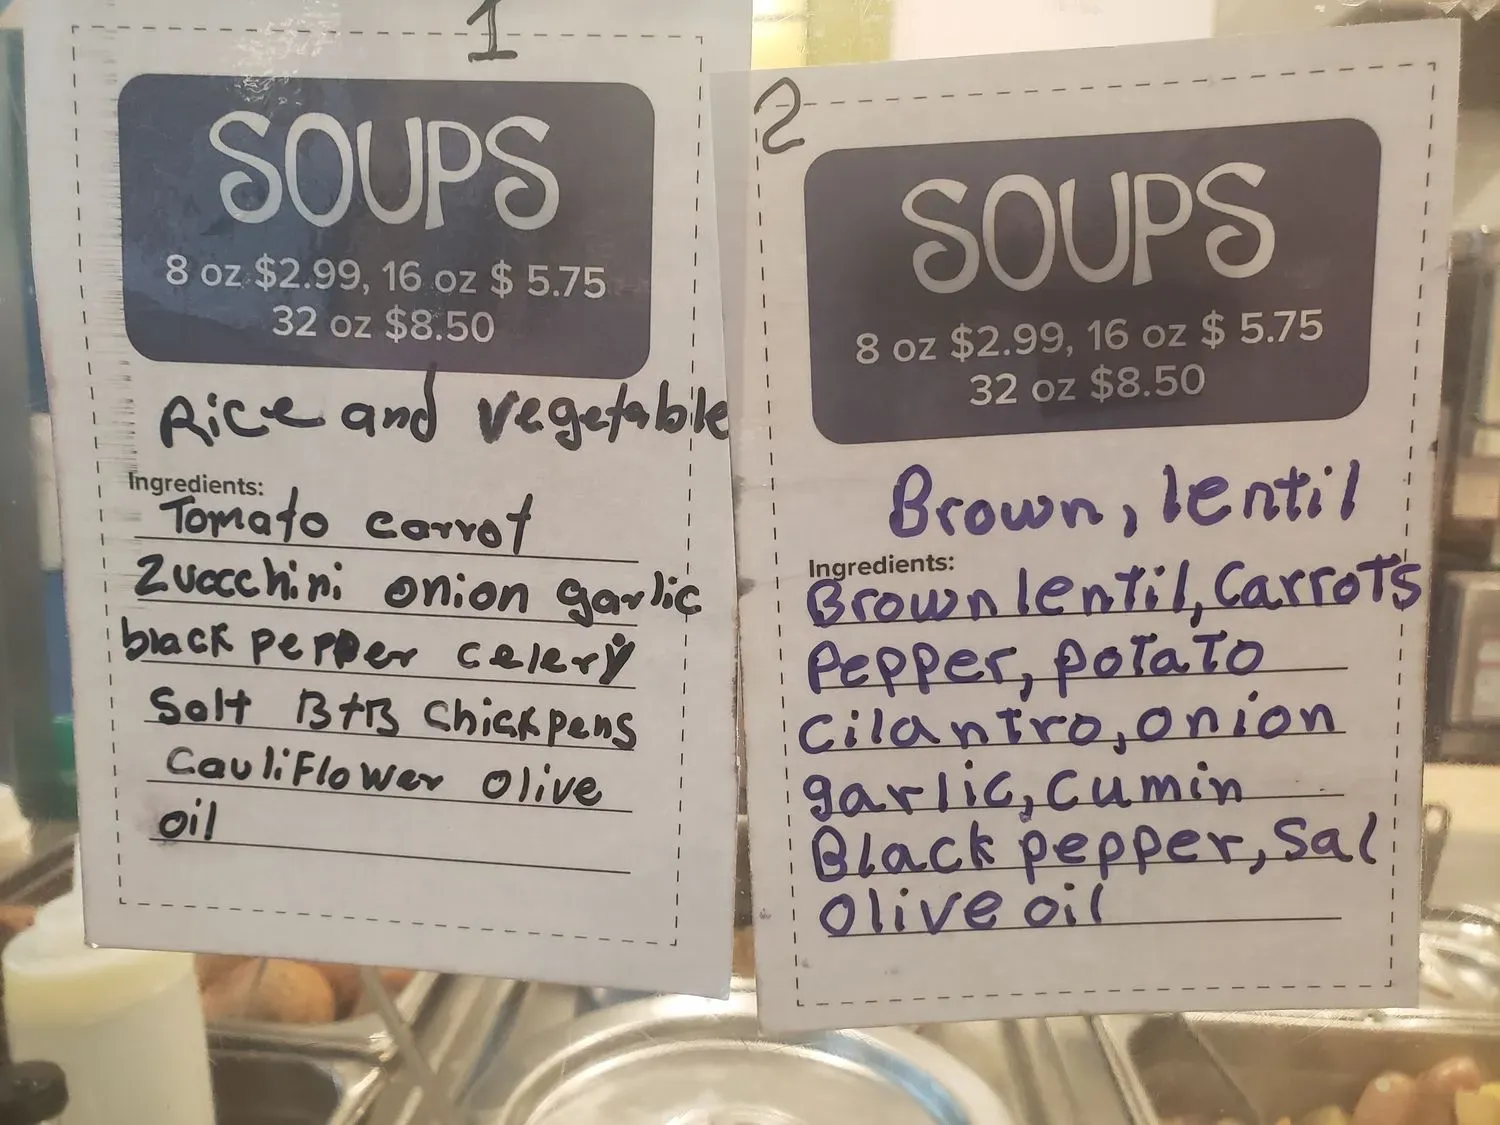 1
SOUPS
8 oz $2.99, 16 oz $ 5.75
32 oz $8.50
Rice and vegetable
Ingredients:
Tomato carrot
Zuccchini onion garlic
black pepper celery
Salt B+B Chickpens
Cauliflower olive
oil
2
SOUPS
8 oz $2.99, 16 oz $ 5.75
32 oz $8.50
Brown, lentil
Ingredients:
Brown lentil, Carrots
Pepper, potato
cilantro, onion
garlic, cumin
Black pepper, Sal
olive oil